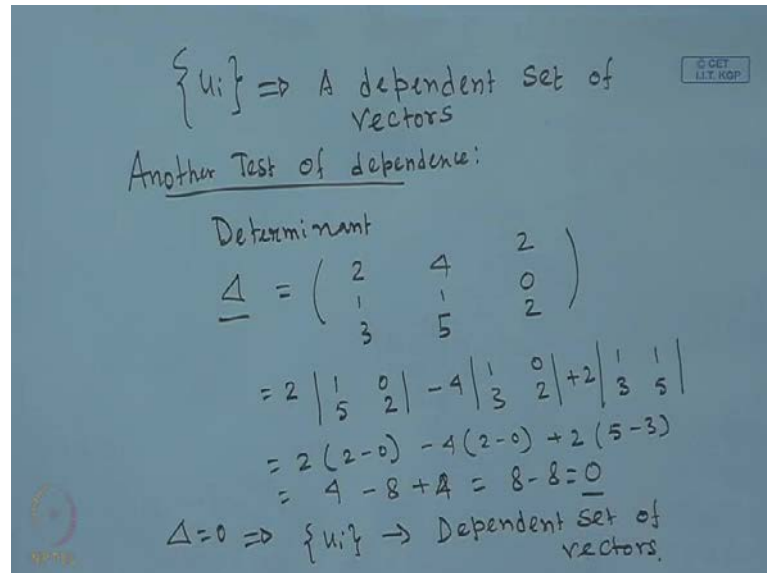 {ui} => A dependent set of
© CET
I.I.T. KGP
vectors
Another Test of dependence:
Determinant
Δ = ( 2 4 2
1 1 0
3 5 2 )
= 2 | 1 0 | - 4 | 1 0 | + 2 | 1 1 |
5 2 3 2 3 5
= 2 (2-0) - 4 (2-0) + 2 (5-3)
= 4 - 8 + 4 = 8 - 8 = 0
Δ=0 => {ui} → Dependent set of
vectors.
NPTEL